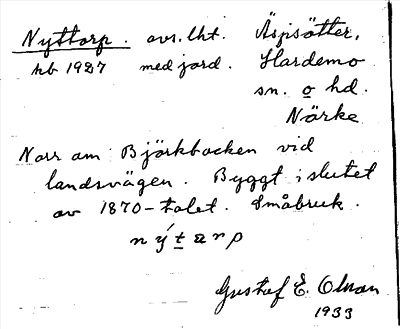 Nyttorp. avs. lht. Äspsätter,
hb 1927 med jord. Hardemo
sn. o hd.
Närke
Norr om Björkbacken vid
landsvägen. Byggt i slutet
av 1870-talet. Småbruk.
Gustaf E.
1933